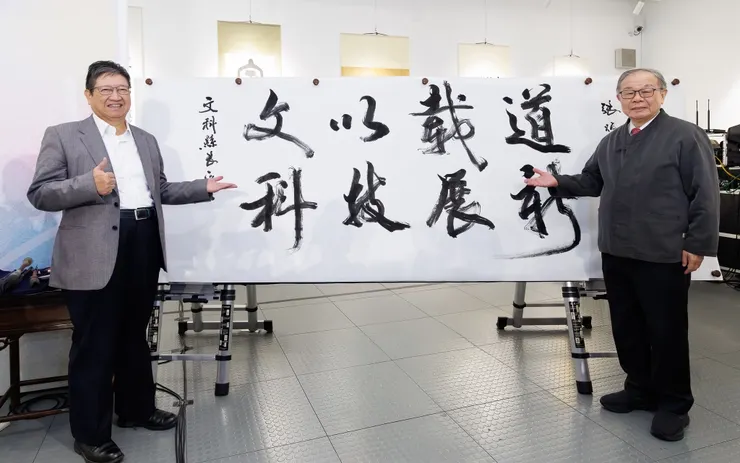 文科縣長
文以載道
科技展新
張